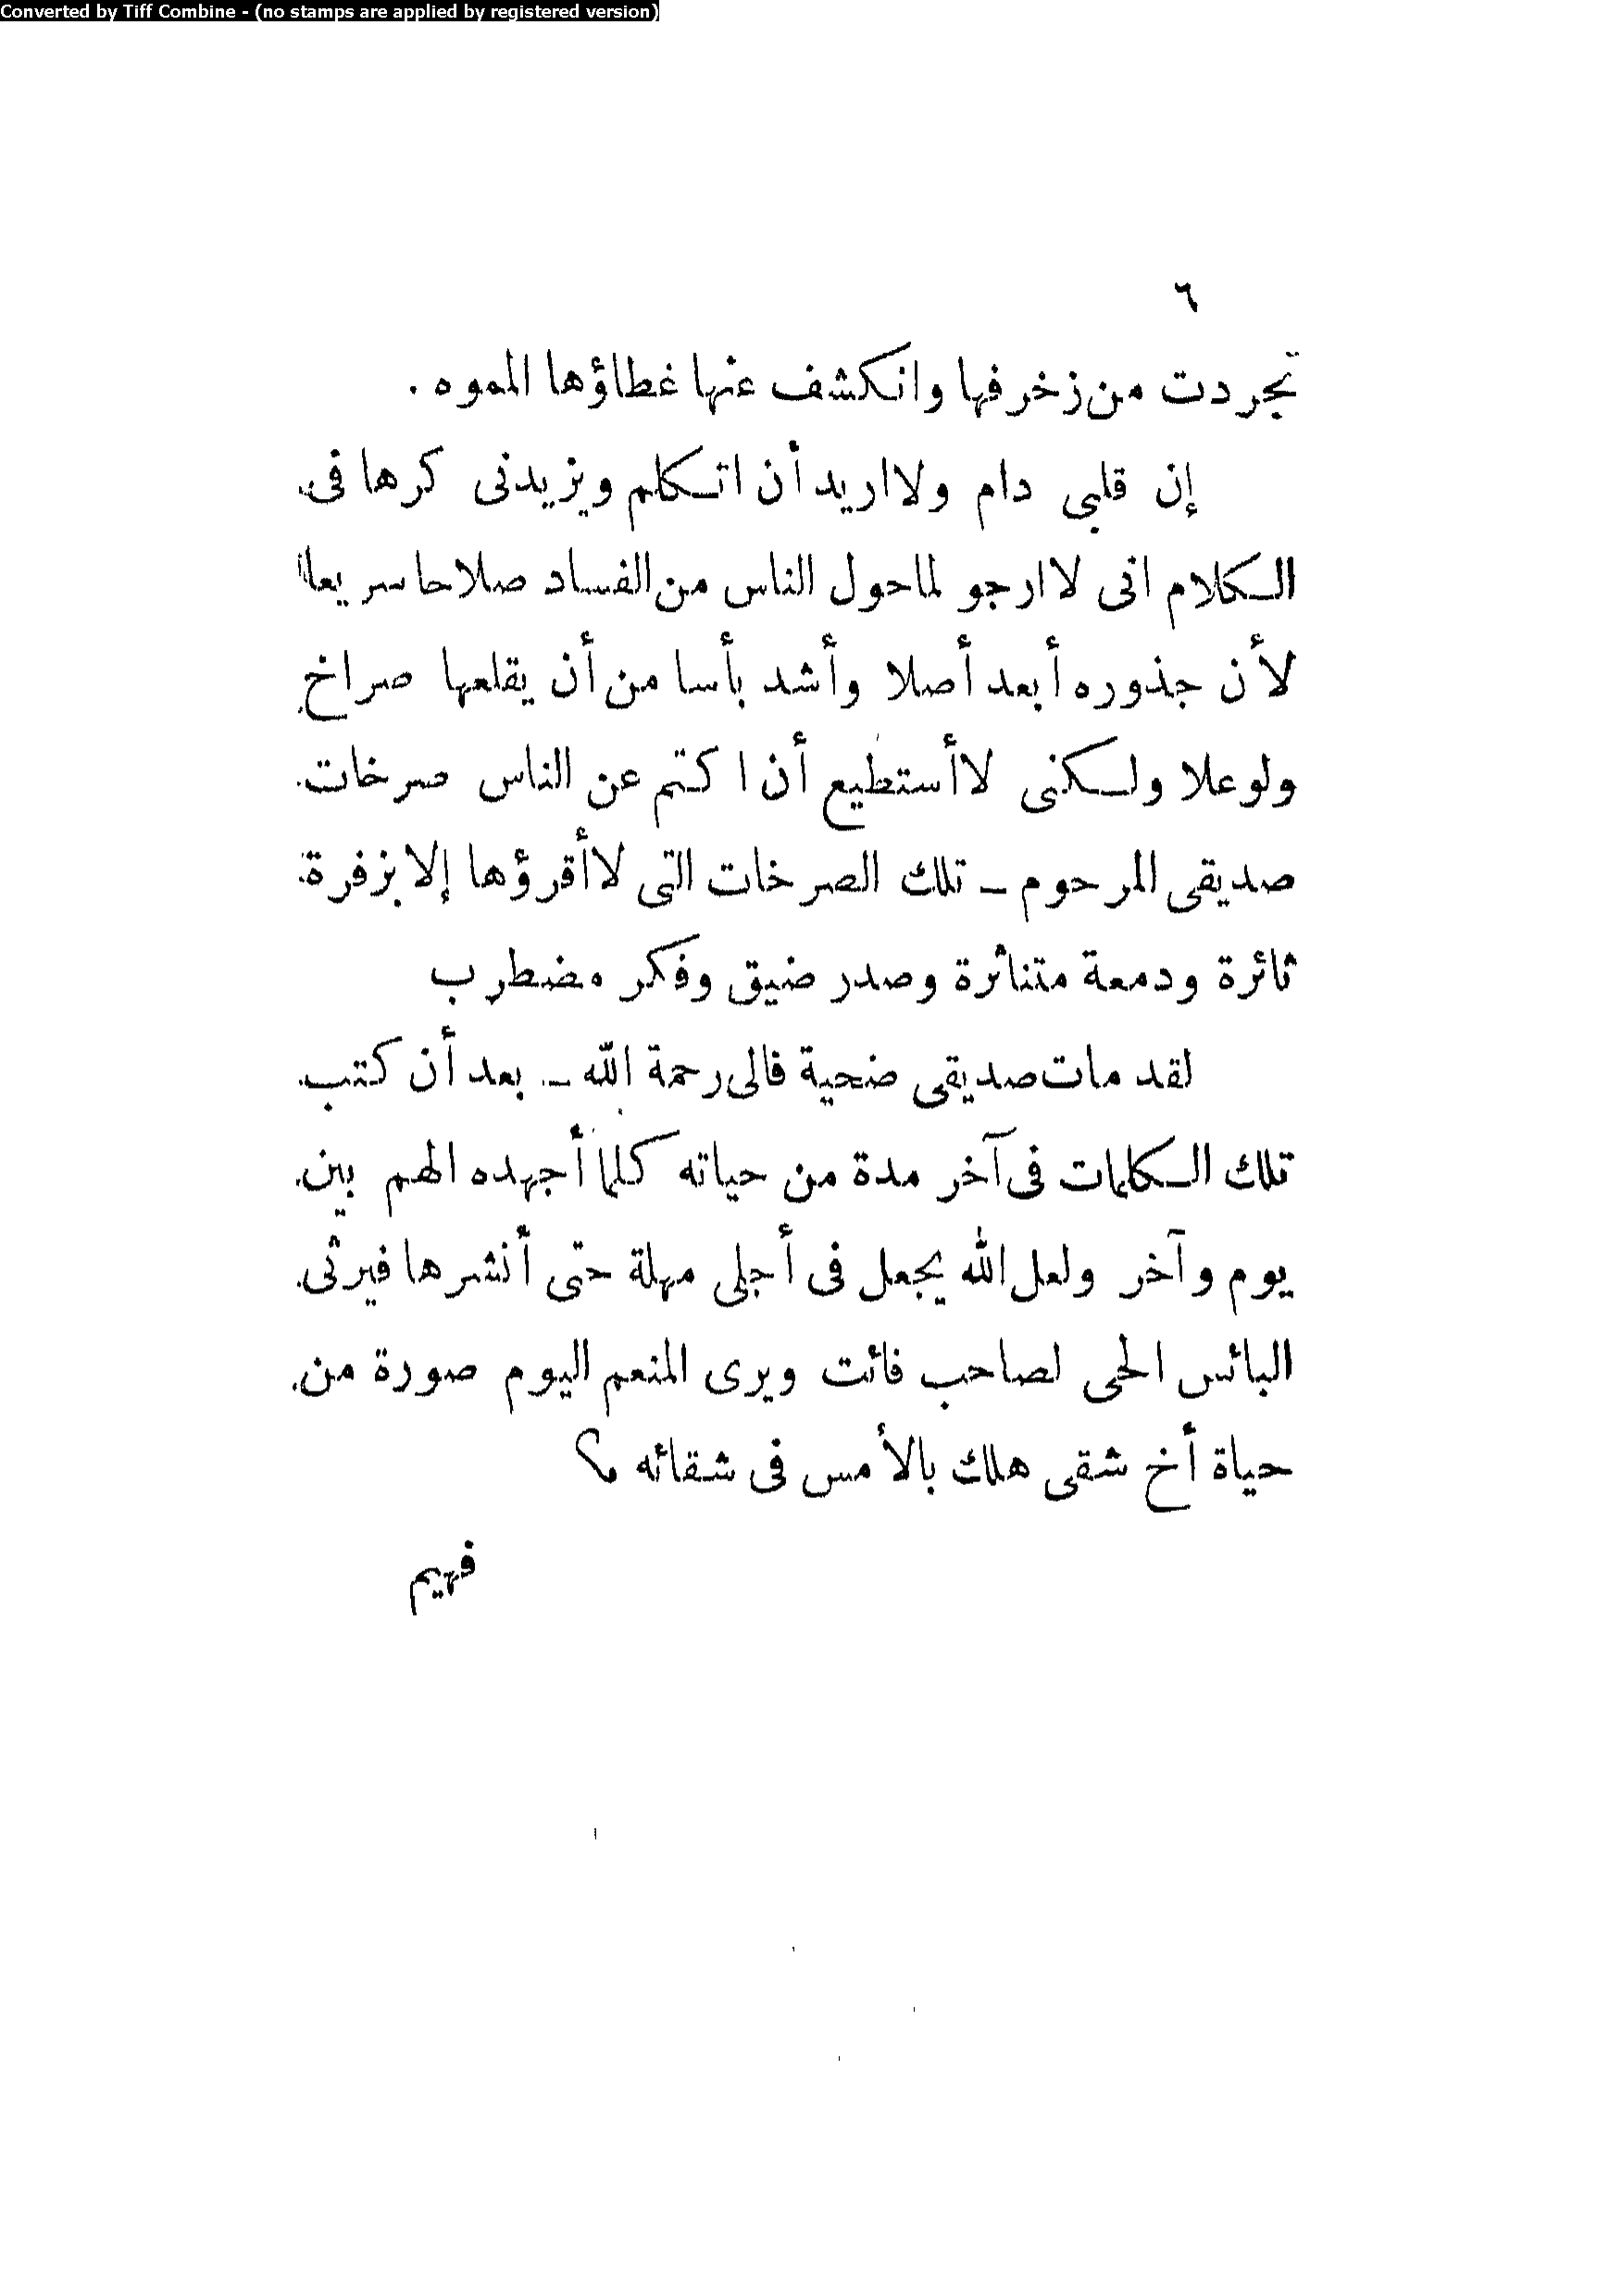 Converted by Tiff Combine - (no stamps are applied by registered version)
٦
تجردت من زخرفها وانكشف عنها غطاؤها المموه .
إن قلبى دام ولا اريد أن اتكلم ويزيدنى كرها فى
الكلام انى لا ارجو لما حول الناس من الفساد صلاحا سريعا
لأن جذوره أبعد أصلا وأشد بأسا من أن يقلعها صراخ
ولو علا ولكنى لا أستطيع أن اكتم عن الناس صرخات
صديقى المرحوم – تلك الصرخات التى لا أقرؤها إلا بزفرة
ثائرة ودمعة متناثرة وصدر ضيق وفكر مضطرب
لقد مات صديقى ضحية فالى رحمة الله – بعد أن كتب
تلك الكلمات فى آخر مدة من حياته كلما أجهده الهم بين
يوم وآخر ولعل الله يجعل فى أجلى مهلة حتى أنشرها فيرثى
البائس الحى لصاحب فائت ويرى المنعم اليوم صورة من
حياة أخ شقى هلك بالأمس فى شقائه
فهيم